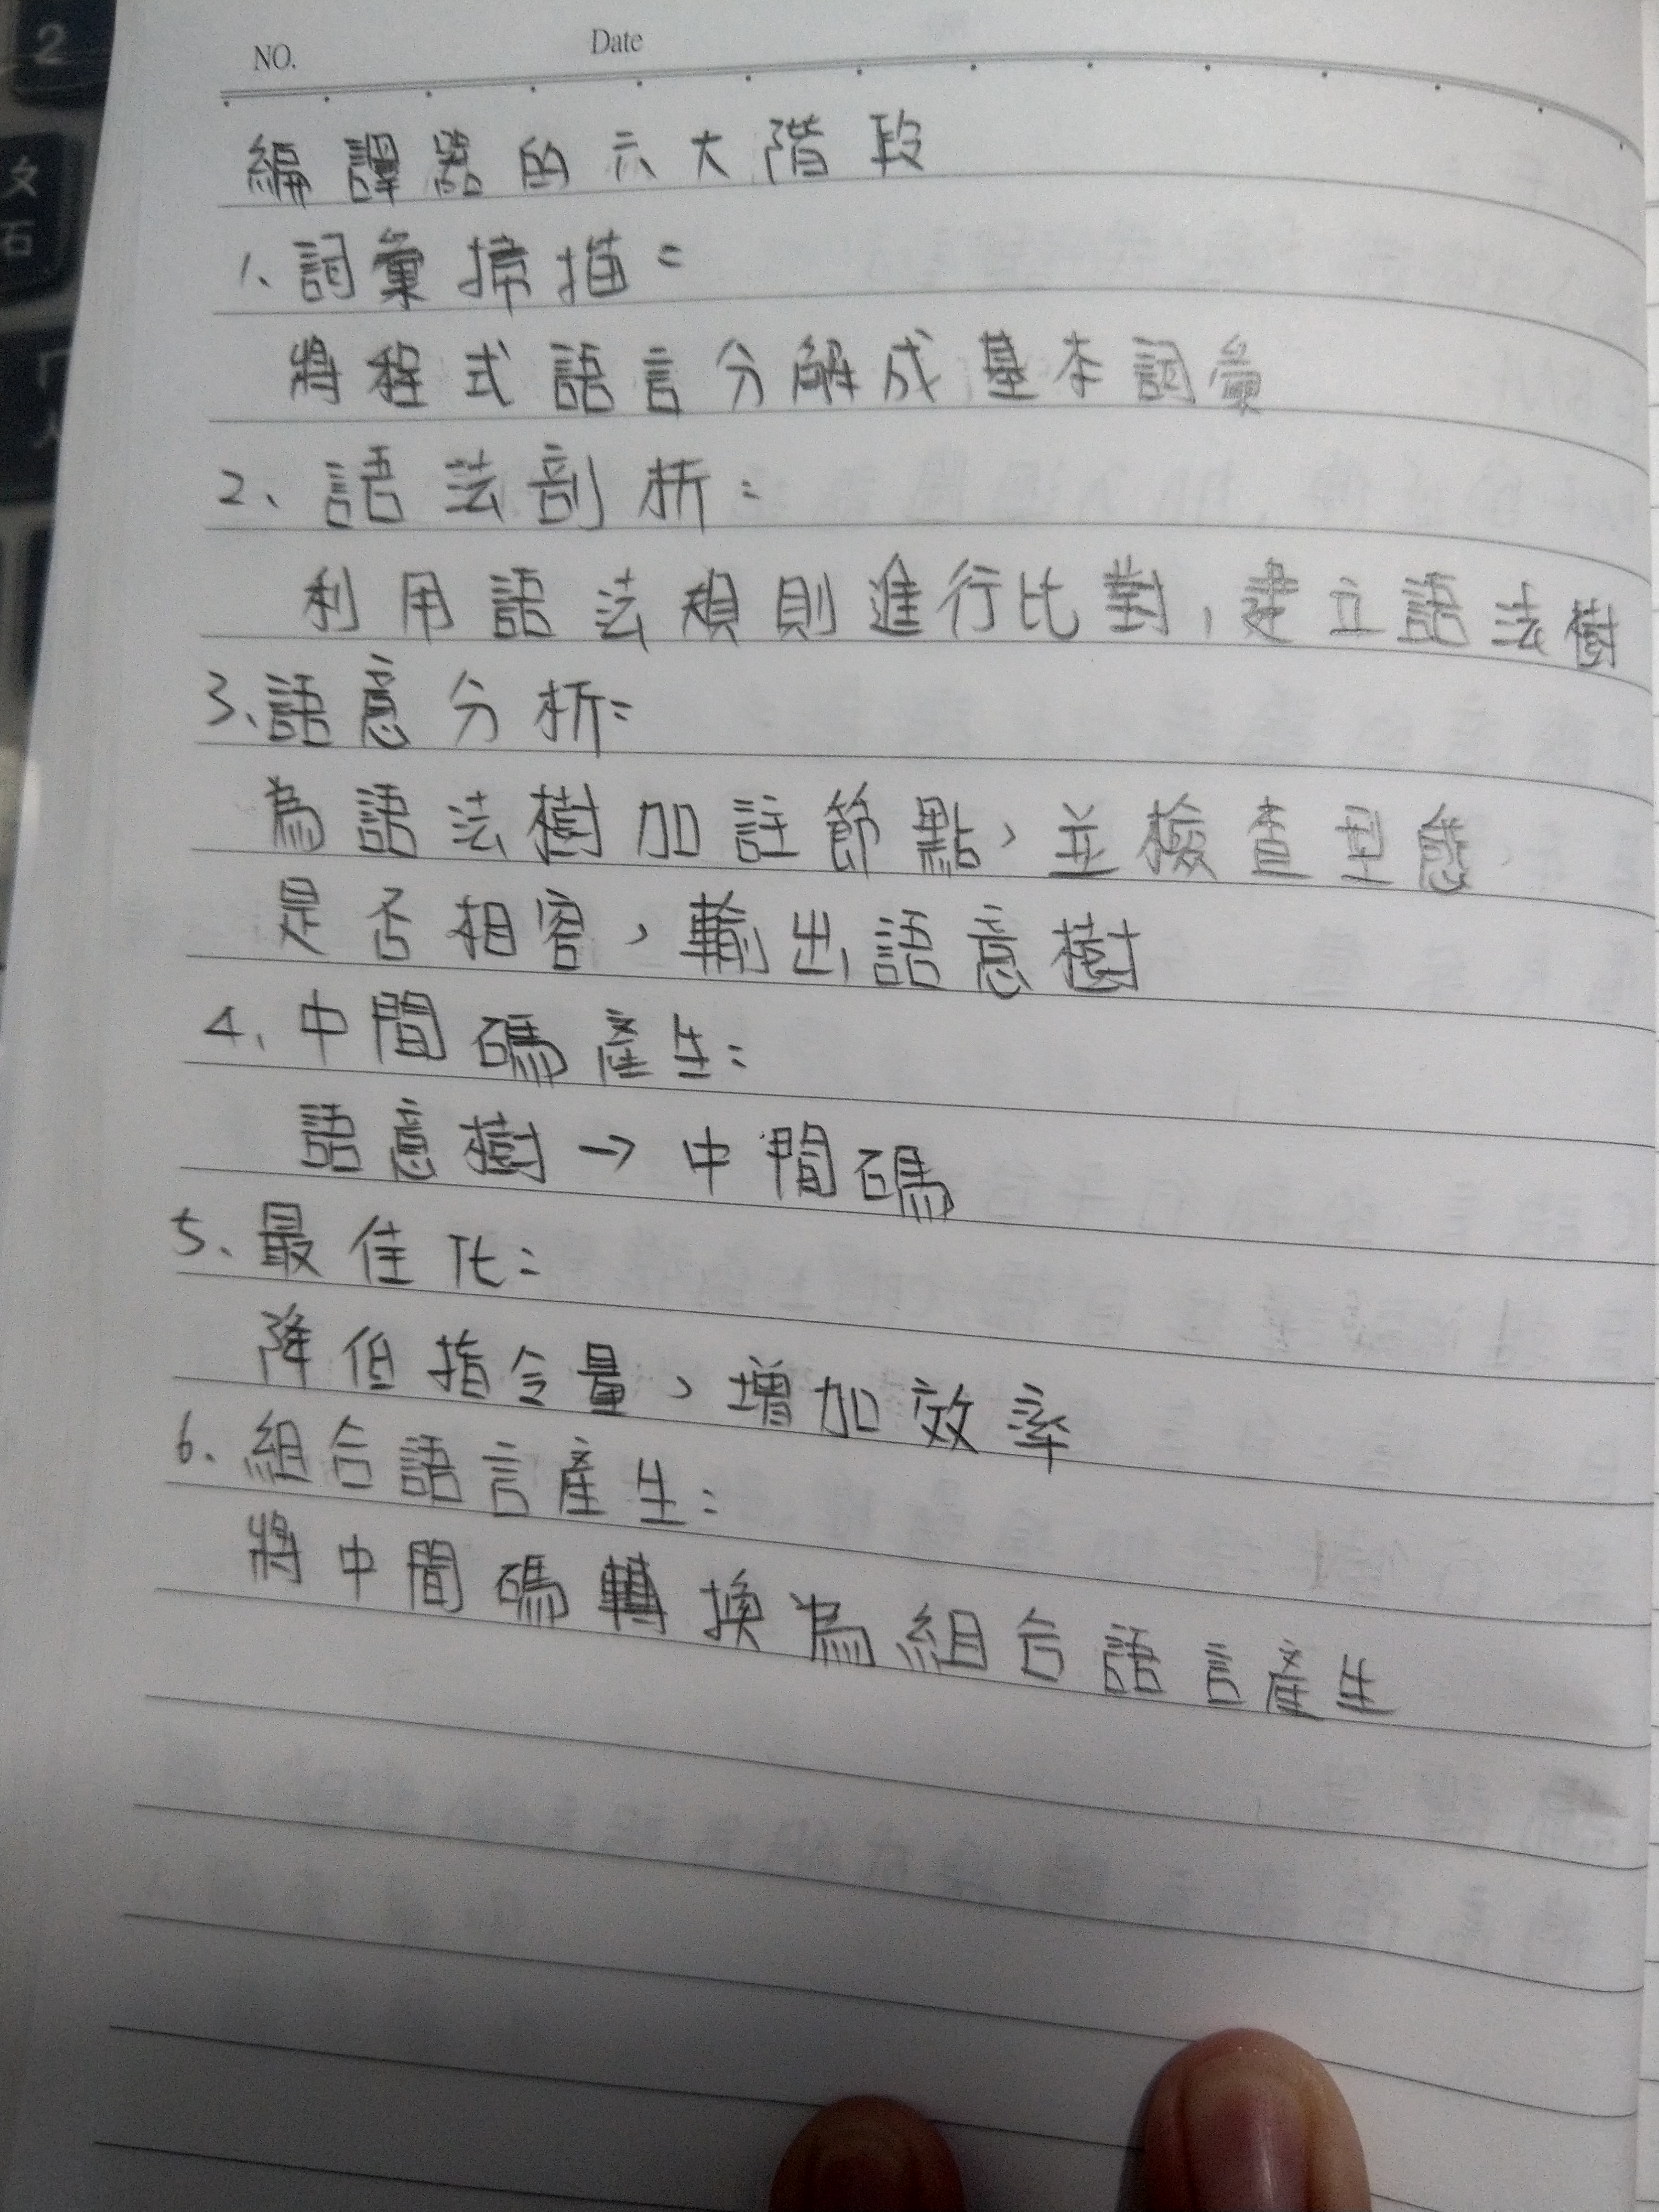 NO.
Date
編譯器的六大階段
1、詞彙掃描:
將程式語言分解成基本詞彙
2、語法剖析:
利用語法規則進行比對,建立語法樹
3、語意分析:
為語法樹加註節點,並檢查型態
是否相容,輸出語意樹
4、中間碼產生:
語意樹→中間碼
5、最佳化:
降低指令量,增加效率
6、組合語言產生:
將中間碼轉換為組合語言產生
2